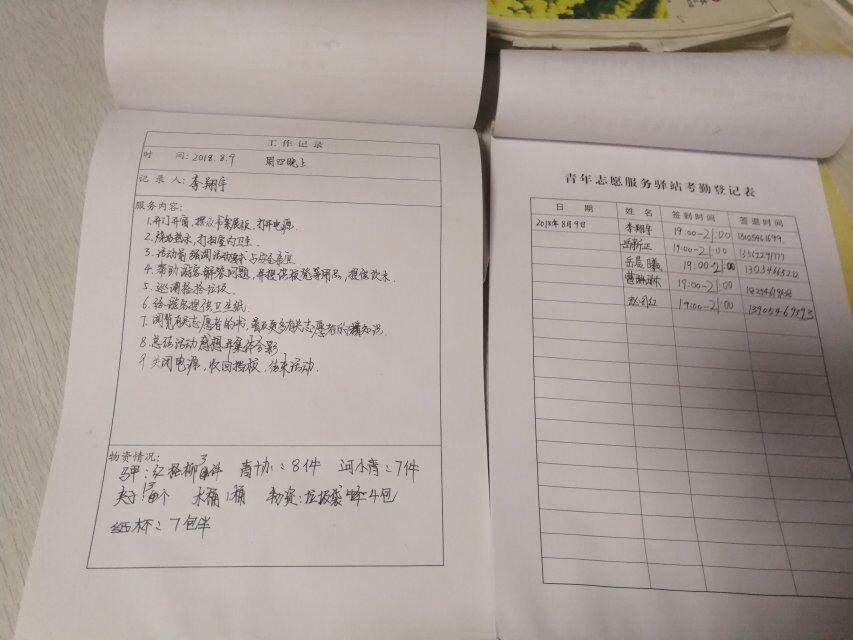 工作记录
时 间:2018.8.9 周四晚上
记录人:李翔宇
服务内容:
1.开门开窗,摆放书桌展板,打开电源.
2.烧热水,打扫室内卫生.
3.活动前强调活动要求与安全意识
4.帮助游客解答问题,并提供报览等用品,提供饮水.
5.巡逻捡拾垃圾.
6.给游客提供卫生纸.
7.阅览有关志愿者的书,并更多有关志愿者的知识.
8.总结活动感想并集体合影
9.关闭电源,收回挡板,结束活动.
物资情况:
马甲:红 柳 件 青协:8件 河小青:7件
夹子: 个 水桶1桶 物资:垃圾袋4包
纸杯:7包半
青年志愿服务驿站考勤登记表
日 期 姓 名 签到时间 签退时间
2018年8月9日 李翔宇 19:00-21:00
岳新正 19:00-21:00
岳晨曦 19:00-21:00
曹琳琳 19:00-21:00
赵 红 19:00-21:00